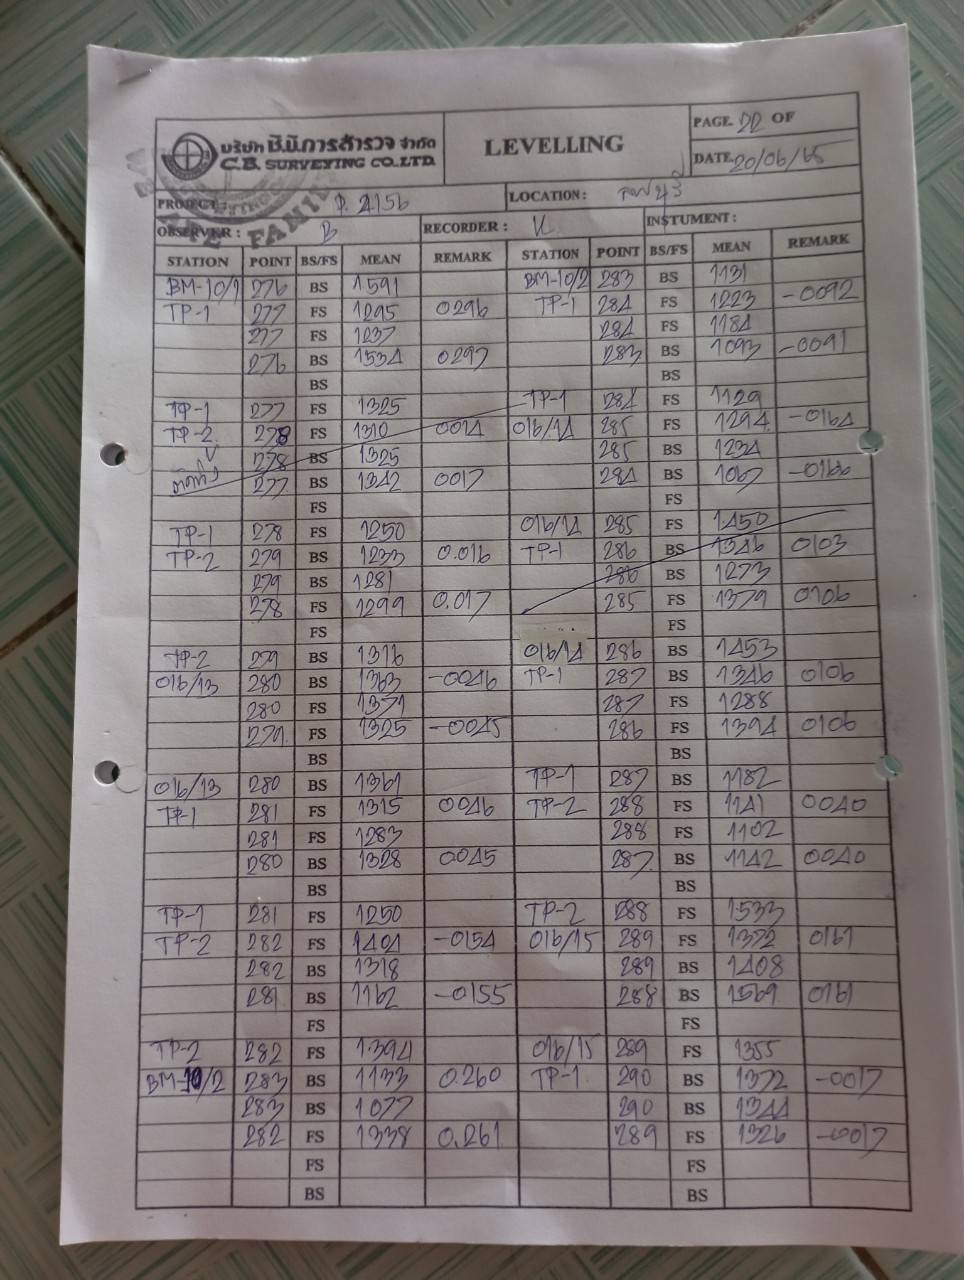 บริษัท ซี.บี.การสำรวจ จำกัด
C.B. SURVEYING CO.,LTD.
LEVELLING
PAGE. 22 OF
DATE. 20/06/65
PROJECT :
LOCATION : ลพบุรี
OBSERVER : B RECORDER : K INSTUMENT :
STATION POINT BS/FS MEAN REMARK STATION POINT BS/FS MEAN REMARK
BM-10/1 276 BS 1591 BM-10/2 283 BS 1131
TP-1 277 FS 1295 0296 TP-1 284 FS 1223 -0092
277 FS 1237 284 FS 1184
276 BS 1534 0297 283 BS 1093 -0091
BS BS
TP-1 277 FS 1325 TP-1 284 FS 1129
TP-2 278 FS 1310 0014 016/14 285 FS 1294 -0164
278 BS 1325 285 BS 1234
277 BS 1342 0017 284 BS 1067 -0166
FS FS
TP-1 278 FS 1250 016/14 285 FS 1450
TP-2 279 BS 1233 0.016 TP-1 286 BS 1346 0103
279 BS 1281 286 BS 1273
278 FS 1299 0.017 285 FS 1379 0106
FS FS
TP-2 279 BS 1316 016/14 286 BS 1453
016/13 280 BS 1363 -0046 TP-1 287 BS 1346 0106
280 FS 1371 287 FS 1288
279 FS 1325 -0045 286 FS 1394 0106
BS BS
016/13 280 BS 1361 TP-1 287 BS 1182
TP-1 281 FS 1315 0046 TP-2 288 FS 1141 0040
281 FS 1283 288 FS 1102
280 BS 1328 0045 287 BS 1142 0040
BS BS
TP-1 281 FS 1250 TP-2 288 FS 1533
TP-2 282 FS 1404 -0154 016/15 289 FS 1372 0161
282 BS 1318 289 BS 1408
281 BS 1162 -0155 288 BS 1569 0161
FS FS
TP-2 282 FS 1394 016/15 289 FS 1355
BM-10/2 283 BS 1133 0.260 TP-1 290 BS 1372 -0017
283 BS 1077 290 BS 1344
282 FS 1338 0.261 289 FS 1326 -0017
FS FS
BS BS